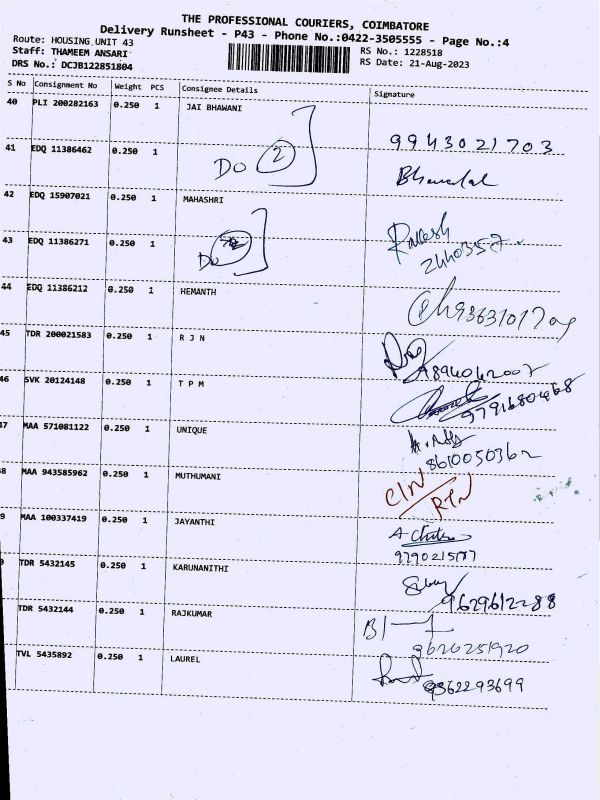 THE PROFESSIONAL COURIERS, COIMBATORE
Delivery Runsheet - P43 - Phone No.:0422-3505555 - Page No.:4
Route: HOUSING UNIT 43
RS No.: 1228518
Staff: THAMEEM ANSARI
RS Date: 21-Aug-2023
DRS No.: DCJB122851804
S No Consignment No Weight PCS Consignee Details Signature
40 PLI 200282163 0.250 1 JAI BHAWANI
9943021703
41 EDQ 11386462 0.250 1
Do 2
42 EDQ 15907021 0.250 1 MAHASHRI
Rakesh
43 EDQ 11386271 0.250 1
2440357
Do
44 EDQ 11386212 0.250 1 HEMANTH
45 TDR 200021583 0.250 1 R J N
9894042007
46 SVK 20124148 0.250 1 T P M
9791680468
47 MAA 571081122 0.250 1 UNIQUE
8610050362
8 MAA 943585962 0.250 1 MUTHUMANI
CIN
RTN
9 MAA 100337419 0.250 1 JAYANTHI
TDR 5432145 0.250 1 KARUNANITHI
9629612288
TDR 5432144 0.250 1 RAJKUMAR
9626251920
TVL 5435892 0.250 1 LAUREL
9362293699